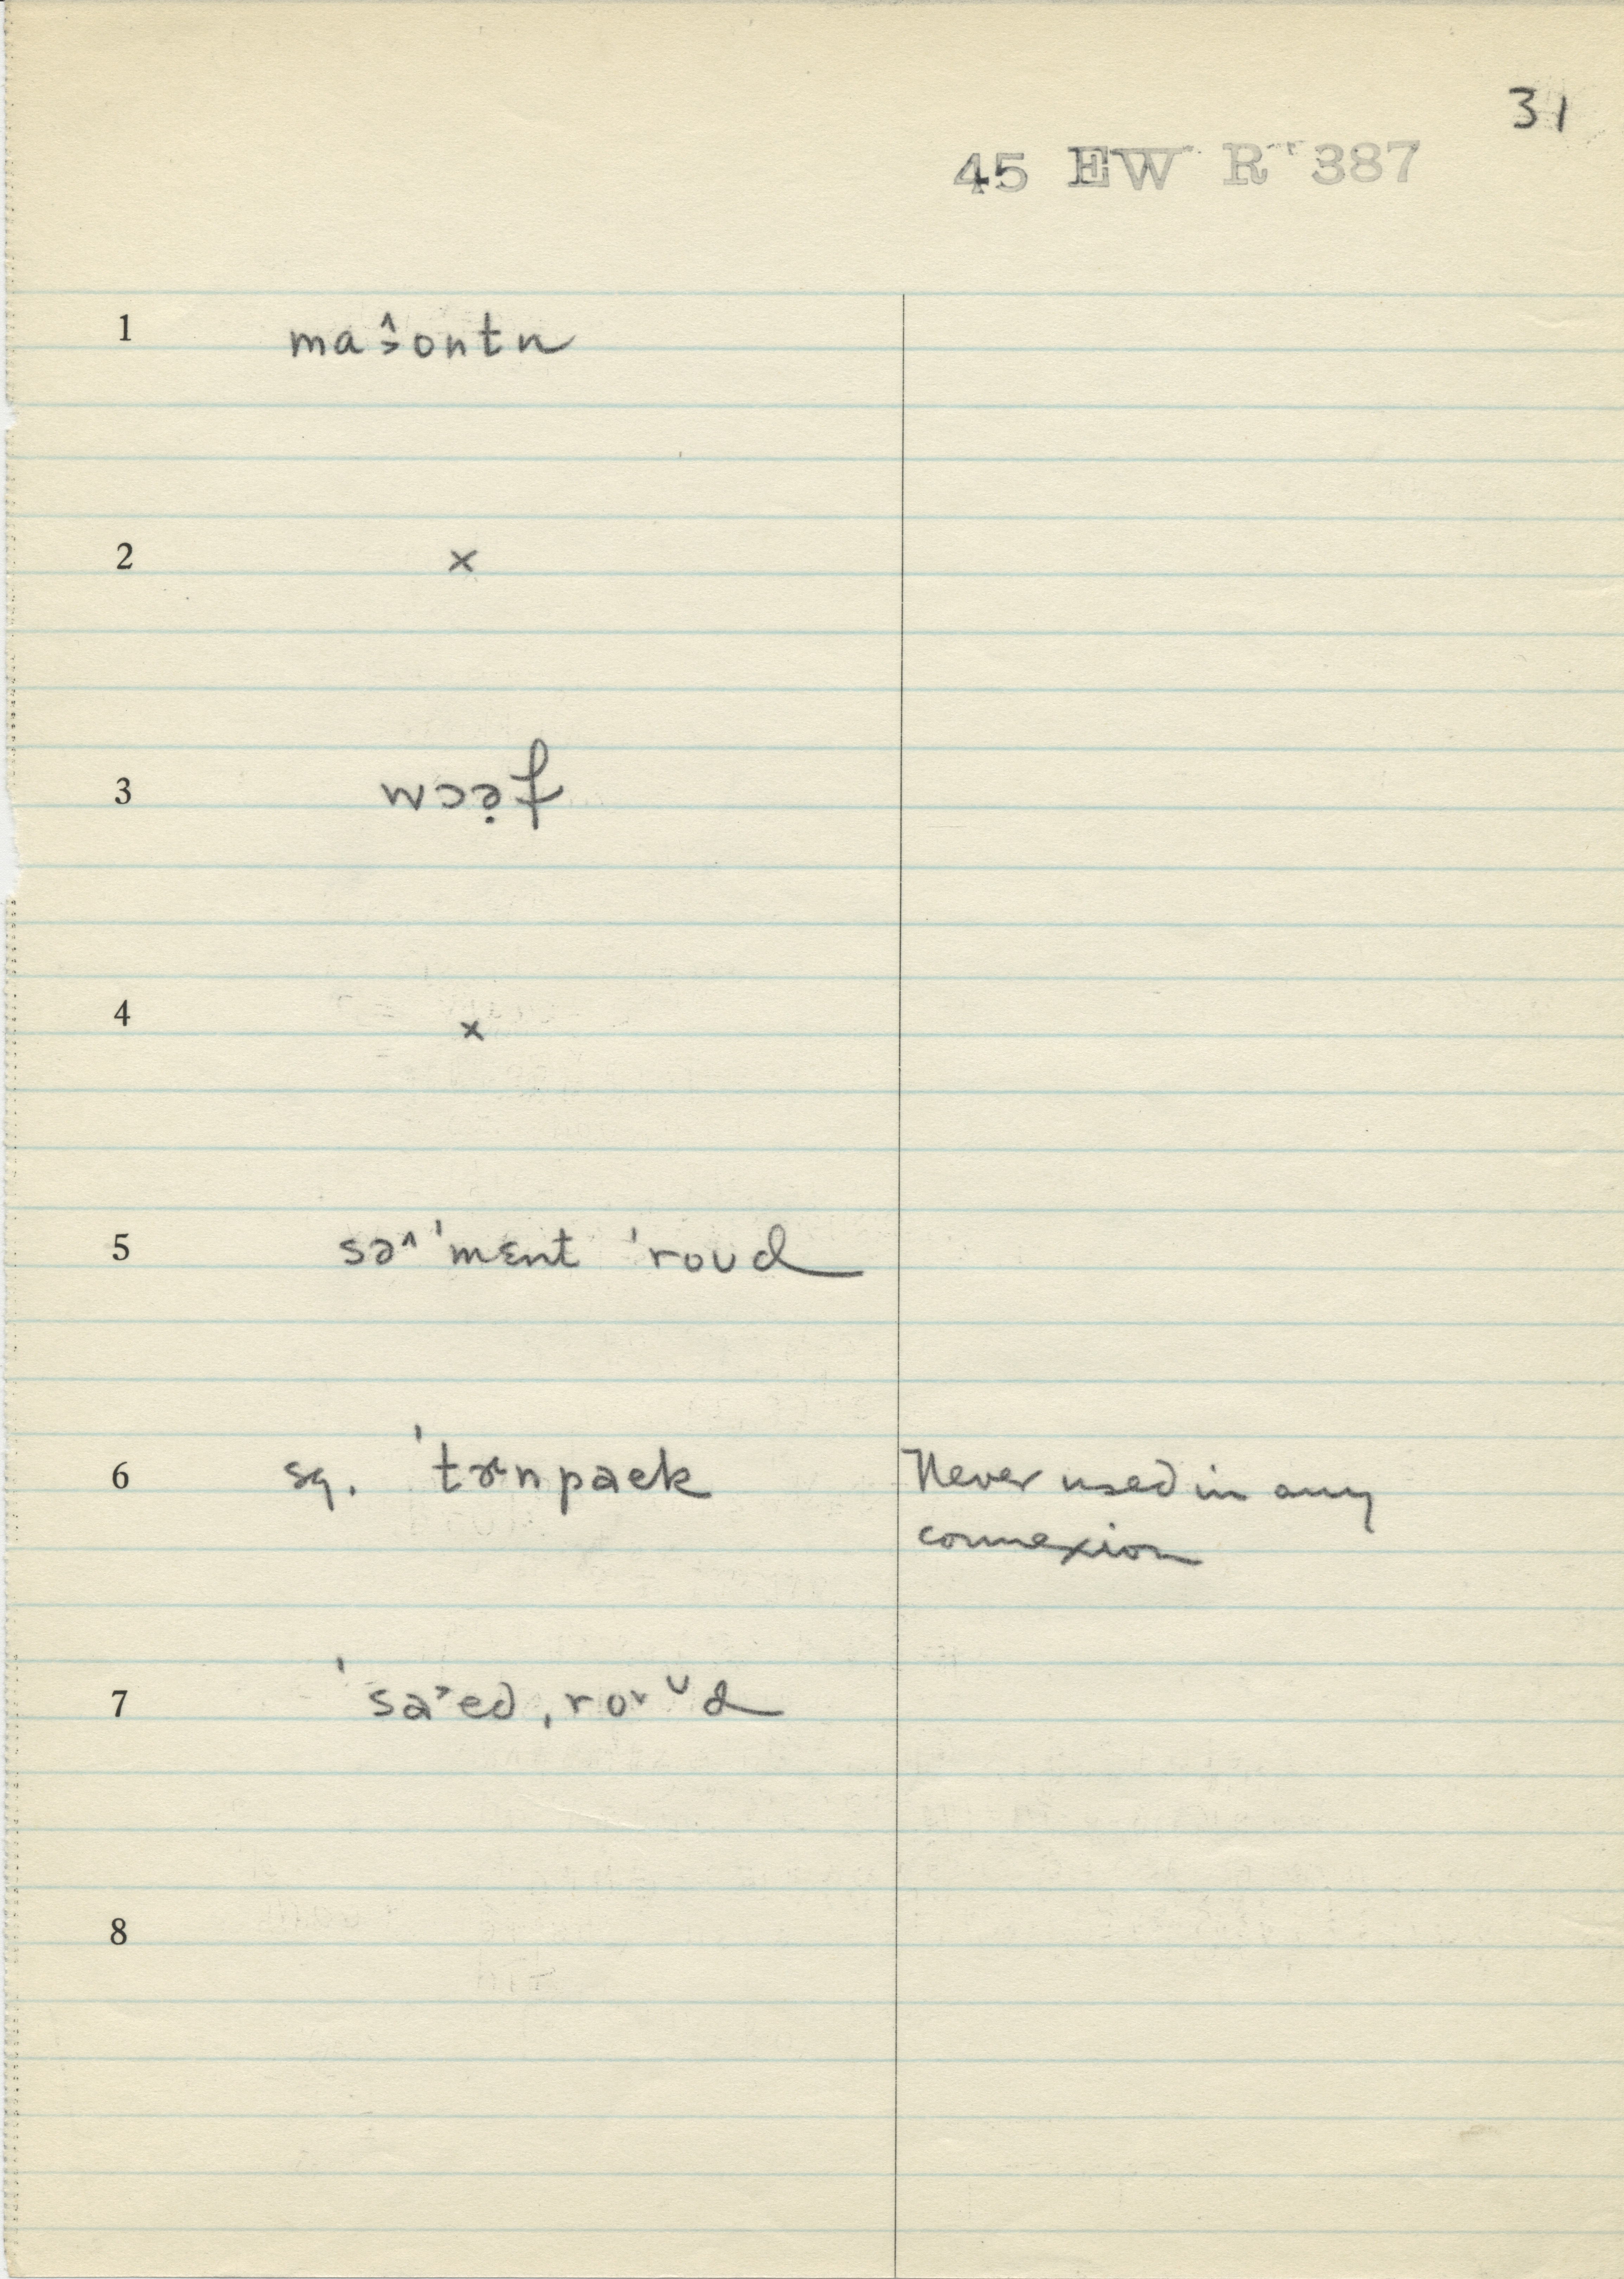 31
45 EW R 387
1 ma˃̂ontn
2 ×
3 wɔə̣f
4 ×
5 sə^ 'mɛnt 'roud
6 sq. 'tɚnpaɛk Never used in any
connexion
7 'sa˃ed ˌro˅ᴗd
8